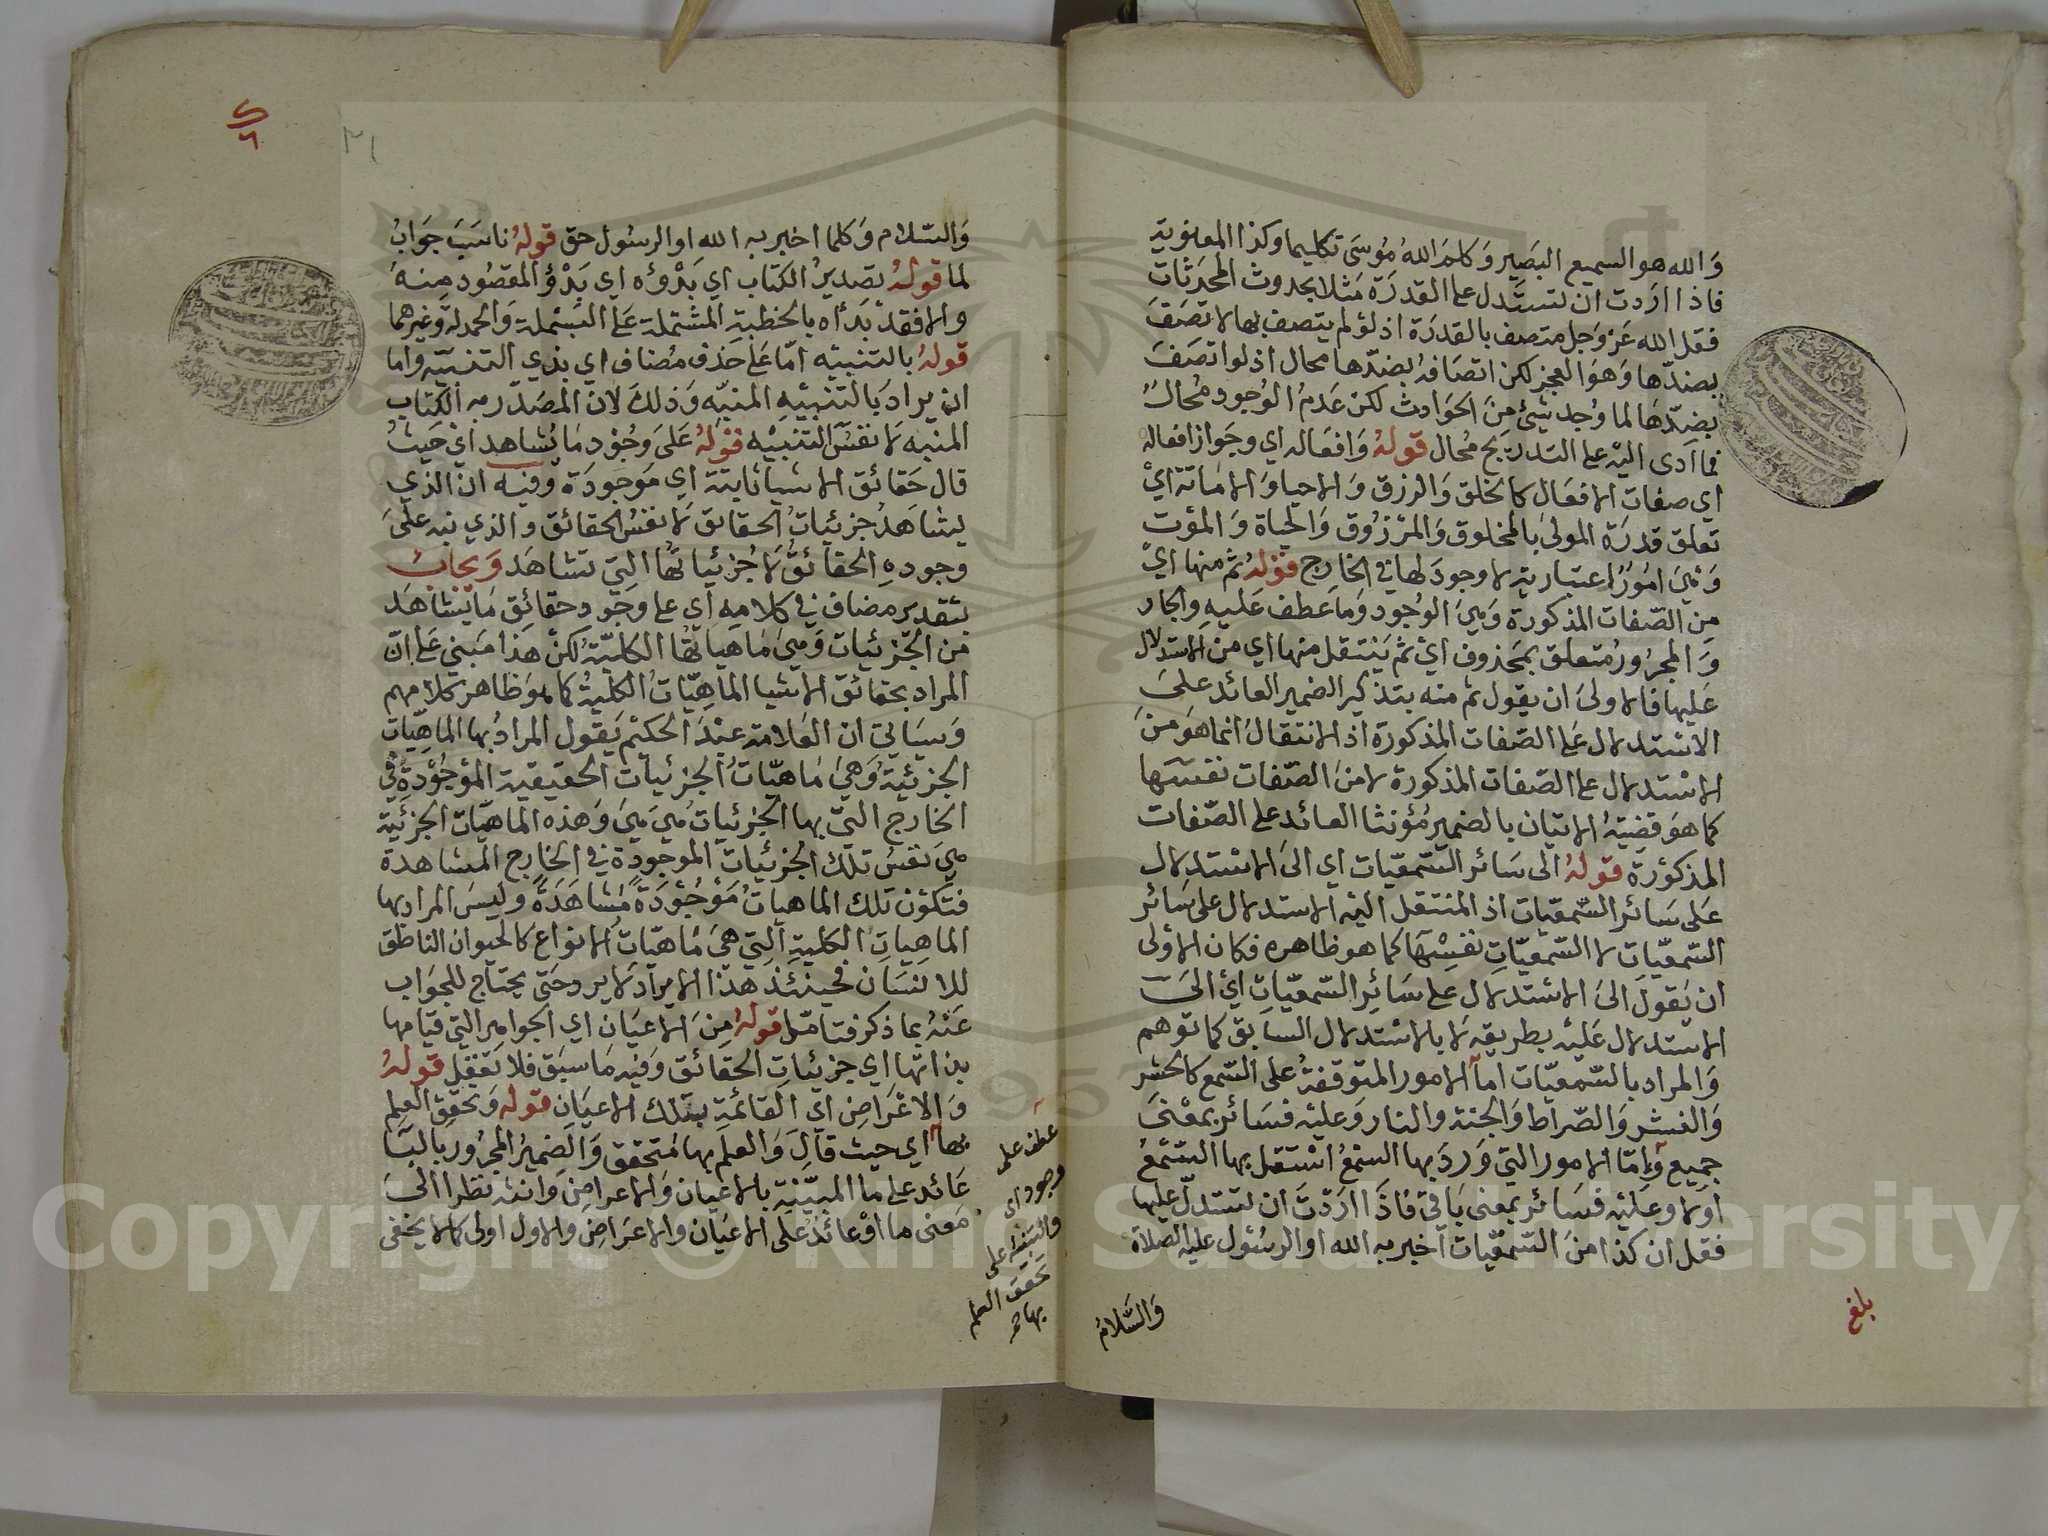 والله هو السميع البصير وكلم الله موسى تكليما وكذا المعنوية
فاذا اردت ان تستدل على القدرة مثلا بحدوث المحدثات
فقل الله عز وجل متصف بالقدرة اذ لو لم يتصف بها لاتصف
بضدها وهو العجز لكن اتصافه بضدها محال اذ لو اتصف
بضدها لما وجد شيئ من الحوادث لكن عدم الوجود محال
فما ادى اليه على التدريج محال قوله وافعاله اي وجواز افعاله
اي صفات الافعال كالخلق والرزق والاحيا والاماتة اي
تعلق قدرة المولى بالمخلوق والمرزوق والحياة والموت
وهي امور اعتبارية لا وجود لها في الخارج قوله ثم منها اي
من الصفات المذكورة وهي الوجود وما عطف عليه والجار
والمجرور متعلق بمحذوف اي ثم ينتقل منها اي من الاستدلال
عليها فالاولى ان يقول ثم منه بتذكير الضمير العائد على
الاستدلال على الصفات المذكورة اذ الانتقال انما هو من
الاستدلال على الصفات المذكورة لا من الصفات نفسها
كما هو قضية الاتيان بالضمير مؤنثا العائد على الصفات
المذكورة قوله الى سائر السمعيات اي الى الاستدلال
على سائر السمعيات اذ المنتقل اليه الاستدلال على سائر
السمعيات لا السمعيات نفسها كما هو ظاهره فكان الاولى
ان يقول الى الاستدلال على سائر السمعيات اي الى
الاستدلال عليه بطريقه لا بالاستدلال السابق كما توهم
والمراد بالسمعيات اما الامور المتوقفة على السمع كالحشر
والنشر والصراط والجنة والنار وعليه فسائر بمعنى
جميع واما الامور التي ورد بها السمع استقل بها السمع
اولا وعليه فسائر بمعنى باقي فاذا اردت ان تستدل عليها
فقل ان كذا من السمعيات اخبر به الله او الرسول عليه الصلاة
والسلام
بلغ
٢١
والسلام وكلما اخبر به الله او الرسول حق قوله ناسب جواب
لما قوله تصدير الكتاب اي بدؤه اي بدؤ المقصود منه
والا فقد بدأه بالخطبة المشتملة على البسملة والحمدلة وغيرهما
قوله بالتنبيه اما على حذف مضاف اي بذي التنبيه واما
ان يراد بالتنبيه المنبه وذلك لان المصدر به الكتاب
المنبه لا نفس التنبيه قوله على وجود ما يشاهد اي حيث
قال حقائق الاشيا ثابتة اي موجودة وفيه ان الذي
يشاهد جزئيات الحقائق لا نفس الحقائق والذي نبه على
وجوده الحقائق لا جزئياتها التي تشاهد ويجاب
بتقدير مضاف في كلامه اي على وجود حقائق ما يشاهد
من الجزئيات وهي ماهياتها الكلية لكن هذا مبني على ان
المراد بحقائق الاشيا الماهيات الكلية كما هو ظاهر كلامهم
وسيأتي ان العلامة عبد الحكيم يقول المراد بها الماهيات
الجزئية وهي ماهيات الجزئيات الحقيقية الموجودة في
الخارج التي بها الجزئيات هي هي وهذه الماهيات الجزئية
هي نفس تلك الجزئيات الموجودة في الخارج المشاهدة
فتكون تلك الماهيات موجودة مشاهدة وليس المراد بها
الماهيات الكلية التي هي ماهيات الانواع كالحيوان الناطق
للانسان فحينئذ هذا الايراد لا يرد حتى يحتاج للجواب
عنه بما ذكر فتامل قوله من الاعيان اي الجواهر التي قيامها
بذاتها اي جزئيات الحقائق وفيه ما سبق فلا تغفل قوله
والاعراض اي القائمة بتلك الاعيان قوله وتحقق العلم
بها اي حيث قال والعلم بها متحقق والضمير المجرور بالبا
عائد على ما المبينة بالاعيان والاعراض وانثه نظرا الى
معنى ما او عائد على الاعيان والاعراض والاول اولى كما لا يخفى
عطف على
وجود اي
والتنبيه على
تحقق العلم
بها